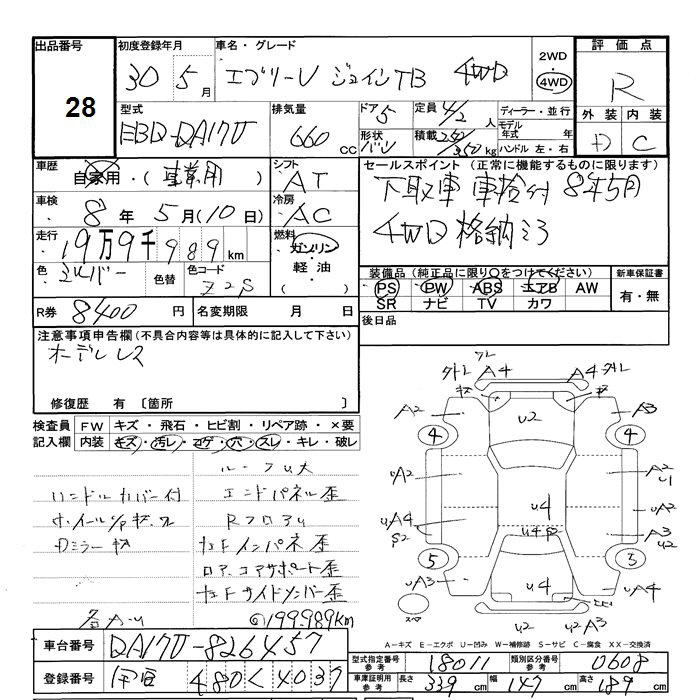 出品番号 28
初度登録年月 30 5月
車名・グレード エブリーV ジョインTB 4WD
2WD 4WD
評価点 R
外装 内装
D C
型式 EBD-DA17V
排気量 660 cc
ドア 5
形状 バン
定員 4/2 人
積載 kg
ディーラー・並行
モデル年式 年式
ハンドル 左・右
車歴 自家用・(事業用)
シフト AT
車検 8年 5月(10日)
冷房 AC
走行 19万9千989km
燃料 ガソリン・軽油・( )
色 シルバー
色替
色コード Z2S
R券 8400円
名変期限 月 日
セールスポイント (正常に機能するものに限ります)
下取車 車検付 8年5月
4WD 格納ミラ
装備品 (純正品に限り○をつけてください)
PS PW ABS エアB AW
SR ナビ TV カワ
新車保証書 有・無
後日品
注意事項申告欄 (不具合内容等は具体的に記入して下さい)
オーデレス
修復歴 有 〔箇所 〕
検査員記入欄
FW キズ・飛石・ヒビ割・リペア跡・×要
内装 キズ・汚レ・コゲ・穴・スレ・キレ・破レ
ルーフu大
ハンドルカバー付 エンドパネル歪
Rフロアu
Dミラーキズ
インパネ歪
コアサポート歪
サイドメンバー歪
各A・u
@199.989km
外レ A4 A4 外レ
A2 u2 A3
4 4
uA2 A2 u1
u4 uA2
uA4 S2 u4 A3 u2
5 3
uA3 u4 uA4
スペア
u2 u2 A4
A-キズ E-エクボ U-凹み W-補修跡 S-サビ C-腐食 XX-交換済
車台番号 DA17V-826457
登録番号 480 く 4037
型式指定番号 参考 18011
類別区分番号 参考 0608
車庫証明用 参考 長さ 339cm 幅 147cm 高さ 189cm